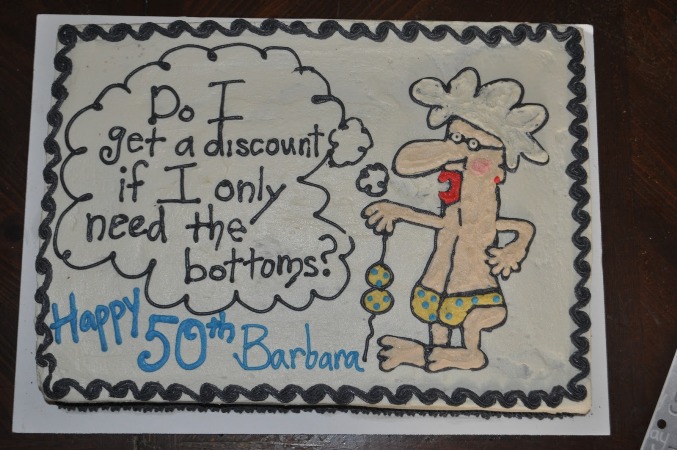 Do I
get a discount
if I only
need the
bottoms?
Happy 50th Barbara